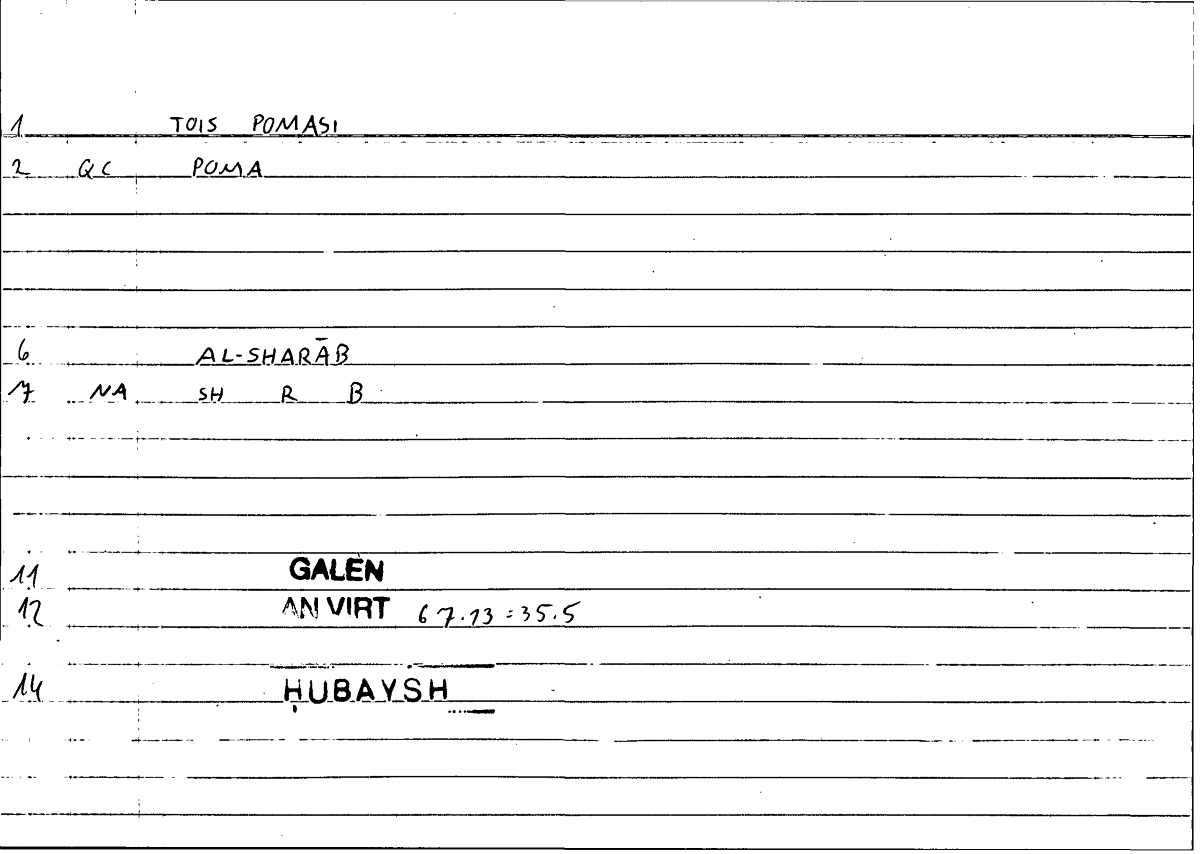 1 TOIS POMASI
2 QC POMA
6 AL-SHARĀB
7 NA SH R B
11 GALEN
12 AN VIRT 67.13=35.5
14 ḤUBAYSH